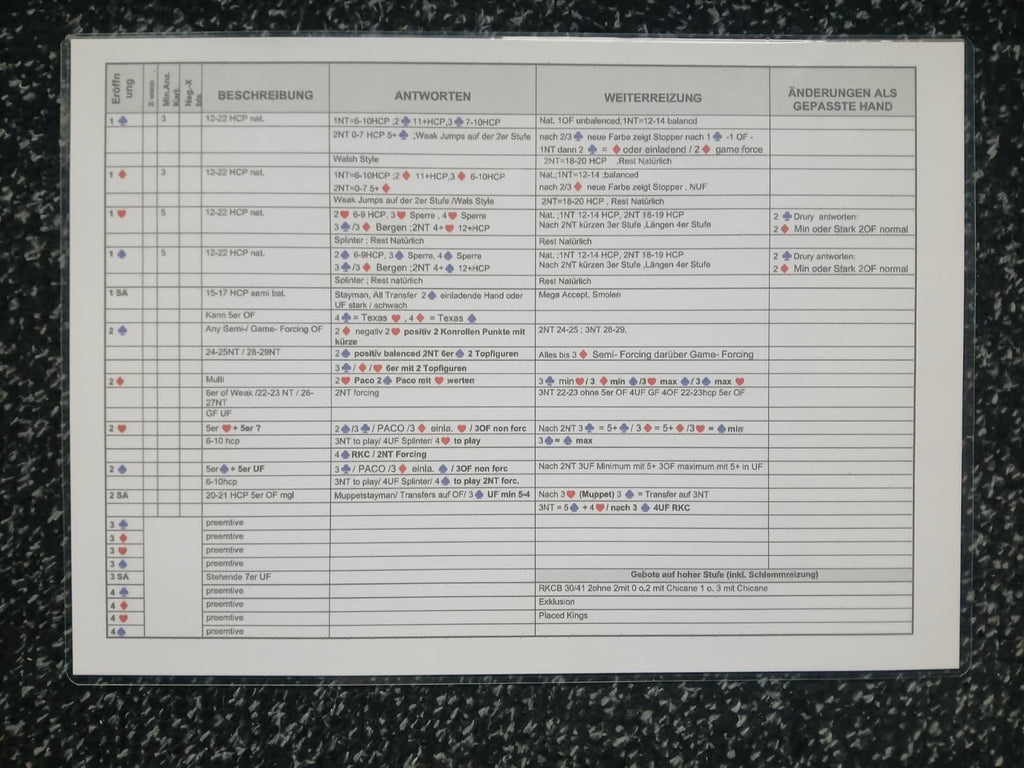 Eröffn ung | X wenn | Min.Anz. Kart. | Neg.-X bis | BESCHREIBUNG | ANTWORTEN | WEITERREIZUNG | ÄNDERUNGEN ALS GEPASSTE HAND
1 ♣ | 3 | 12-22 HCP nat. | 1NT=6-10HCP ;2 ♣ 11+HCP,3 ♣ 7-10HCP | Nat. 1OF unbalenced;1NT=12-14 balancd
2NT 0-7 HCP 5+ ♣ ;Weak Jumps auf der 2er Stufe | nach 2/3 ♣ neue Farbe zeigt Stopper nach 1 ♣ -1 OF -
1NT dann 2 ♣ = ♦ oder einladend / 2 ♦ game force
Walsh Style | 2NT=18-20 HCP ,Rest Natürlich
1 ♦ | 3 | 12-22 HCP nat. | 1NT=6-10HCP ;2 ♦ 11+HCP,3 ♦ 6-10HCP | Nat.;1NT=12-14 ;balanced
2NT=0-7 5+ ♦ | nach 2/3 ♦ neue Farbe zeigt Stopper , NUF
Weak Jumps auf der 2er Stufe /Wals Style | 2NT=18-20 HCP , Rest Natürlich
1 ♥ | 5 | 12-22 HCP nat. | 2♥ 6-9 HCP, 3♥ Sperre , 4♥ Sperre | Nat. ;1NT 12-14 HCP, 2NT 18-19 HCP | 2 ♣ Drury antworten:
3 ♣/3 ♦ Bergen ;2NT 4+♥ 12+HCP | Nach 2NT kürzen 3er Stufe ,Längen 4er Stufe | 2 ♦ Min oder Stark 2OF normal
Splinter ; Rest Natürlich | Rest Natürlich
1 ♠ | 5 | 12-22 HCP nat. | 2♠ 6-9HCP, 3♠ Sperre, 4♠ Sperre | Nat. ;1NT 12-14 HCP, 2NT 18-19 HCP | 2 ♣ Drury antworten:
3 ♣/3 ♦ Bergen ;2NT 4+♠ 12+HCP | Nach 2NT kürzen 3er Stufe ,Längen 4er Stufe | 2 ♦ Min oder Stark 2OF normal
Splinter ; Rest Natürlich | Rest Natürlich
1 SA | 15-17 HCP semi bal. | Stayman, All Transfer 2♠ einladende Hand oder | Mega Accept, Smolen
UF stark / schwach
Kann 5er OF | 4 ♣ = Texas ♥ , 4 ♦ = Texas ♠
2 ♣ | Any Semi-/ Game- Forcing OF | 2 ♦ negativ 2♥ positiv 2 Konrollen Punkte mit | 2NT 24-25 ; 3NT 28-29,
kürze
24-25NT / 28-29NT | 2♠ positiv balenced 2NT 6er♠ 2 Topfiguren | Alles bis 3 ♦ Semi- Forcing darüber Game- Forcing
3♣ / ♦ /♥ 6er mit 2 Topfiguren
2 ♦ | Multi | 2♥ Paco 2♠ Paco mit ♥ werten | 3 ♣ min♥/3 ♦ min ♠/3♥ max ♠/3♠ max ♥
6er of Weak /22-23 NT / 26-27NT | 2NT forcing | 3NT 22-23 ohne 5er OF 4UF GF 4OF 22-23hcp 5er OF
GF UF
2 ♥ | 5er ♥+ 5er ? | 2♠/3♣ / PACO /3 ♦ einla. ♥ / 3OF non forc | Nach 2NT 3♣ = 5+♣/ 3♦= 5+♦/3♥ = ♠min
6-10 hcp | 3NT to play/ 4UF Splinter/ 4♥ to play | 3♠= ♠ max
4♠ RKC / 2NT Forcing
2 ♠ | 5er♠+ 5er UF | 3♣/ PACO /3♦ einla. ♠ / 3OF non forc | Nach 2NT 3UF Minimum mit 5+ 3OF maximum mit 5+ in UF
6-10hcp | 3NT to play/ 4UF Splinter/ 4♠ to play 2NT forc.
2 SA | 20-21 HCP 5er OF mgl | Muppetstayman/ Transfers auf OF/ 3♠ UF min 5-4 | Nach 3♥ (Muppet) 3 ♠ = Transfer auf 3NT
3NT = 5♠ + 4♥/ nach 3 ♠ 4UF RKC
3 ♣ | preemtive
3 ♦ | preemtive
3 ♥ | preemtive
3 ♠ | preemtive
3 SA | Stehende 7er UF | Gebote auf hoher Stufe (inkl. Schlemmreizung)
4 ♣ | preemtive | RKCB 30/41 2ohne 2mit 0 o.2 mit Chicane 1 o. 3 mit Chicane
4 ♦ | preemtive | Exklusion
4 ♥ | preemtive | Placed Kings
4♠ | preemtive